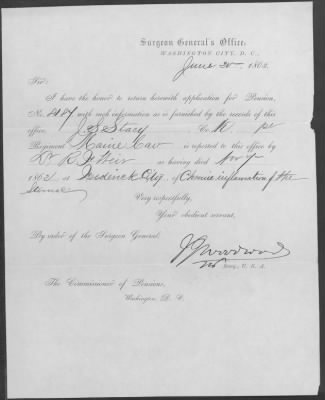 Surgeon General's Office,
WASHINGTON CITY, D. C.,
June 30th 1863.
Sir:
I have the honor to return herewith application for Pension,
No. with such information as is furnished by the records of this
office. J. S. Stacy Co. M. 1st
Regiment Maine Cav is reported to this office by
Dr. R. F. Weir as having died Nov 7
1862 at Frederick City of Chronic inflammation of the
Very respectfully,
Your obedient servant,
By order of the Surgeon General:
J J Woodward
Surg., U. S. A.
The Commissioner of Pensions,
Washington, D. C.